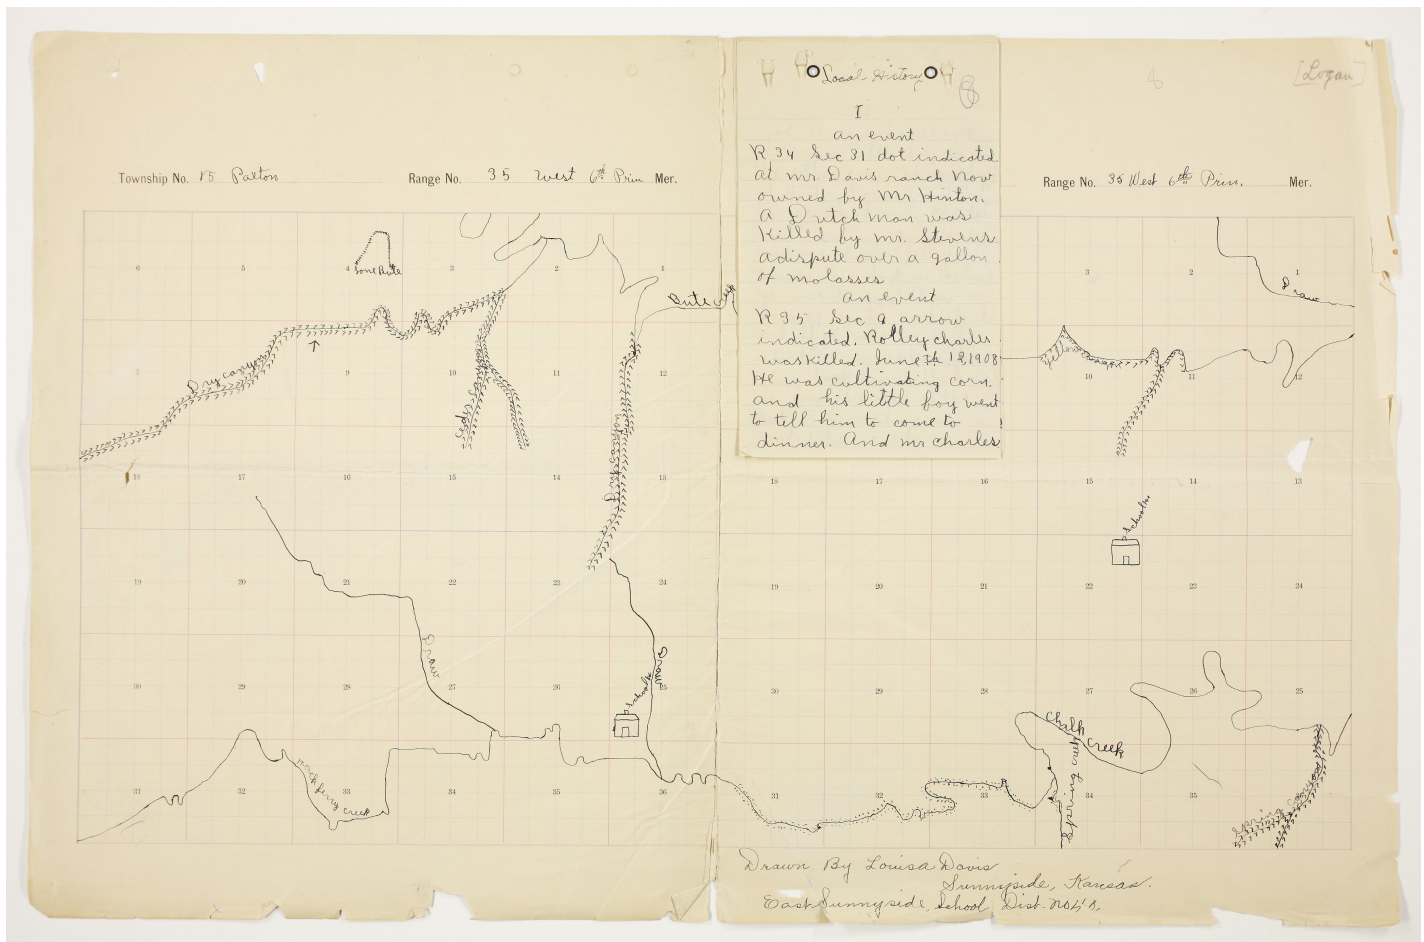 [Logan]
8
Township No. 15 Paxton Range No. 35 West 6th Prin Mer.
Range No. 35 West 6th Prin. Mer.
Local History
8
I
an event
R 34 Sec 31 dot indicated
at mr. Davis ranch Now
owned by Mr Hinton.
A Dutch man was
Killed by mr. Stevens.
a dispute over a gallon
of molasses
an event
R 35 Sec 9 arrow
indicated. Rolley Charles
was killed. June 1908
He was cultivating corn.
and his little boy went
to tell him to come to
dinner. And mr Charles
6 5 4 3 2 1
Lone Bute
Bute Creek
7 9 10 12
Dry canyon
18 17 16 15 13
19 20 21 22 23 24
30 29 28 27 26 25
Draw
Draw
Schoolhs
31 32 33 34 35 36
creek
3 2 1
Draw
10 11 12
Yellow
18 17 16 15 14 13
Schoolhs
19 20 21 22 23 24
30 29 28 27 26 25
Chalk
Creek
Spring creek
31 32 33 34 35
Spring canyon
Drawn By Louisa Davis
Sunnyside, Kansas.
East Sunnyside, School Dist.